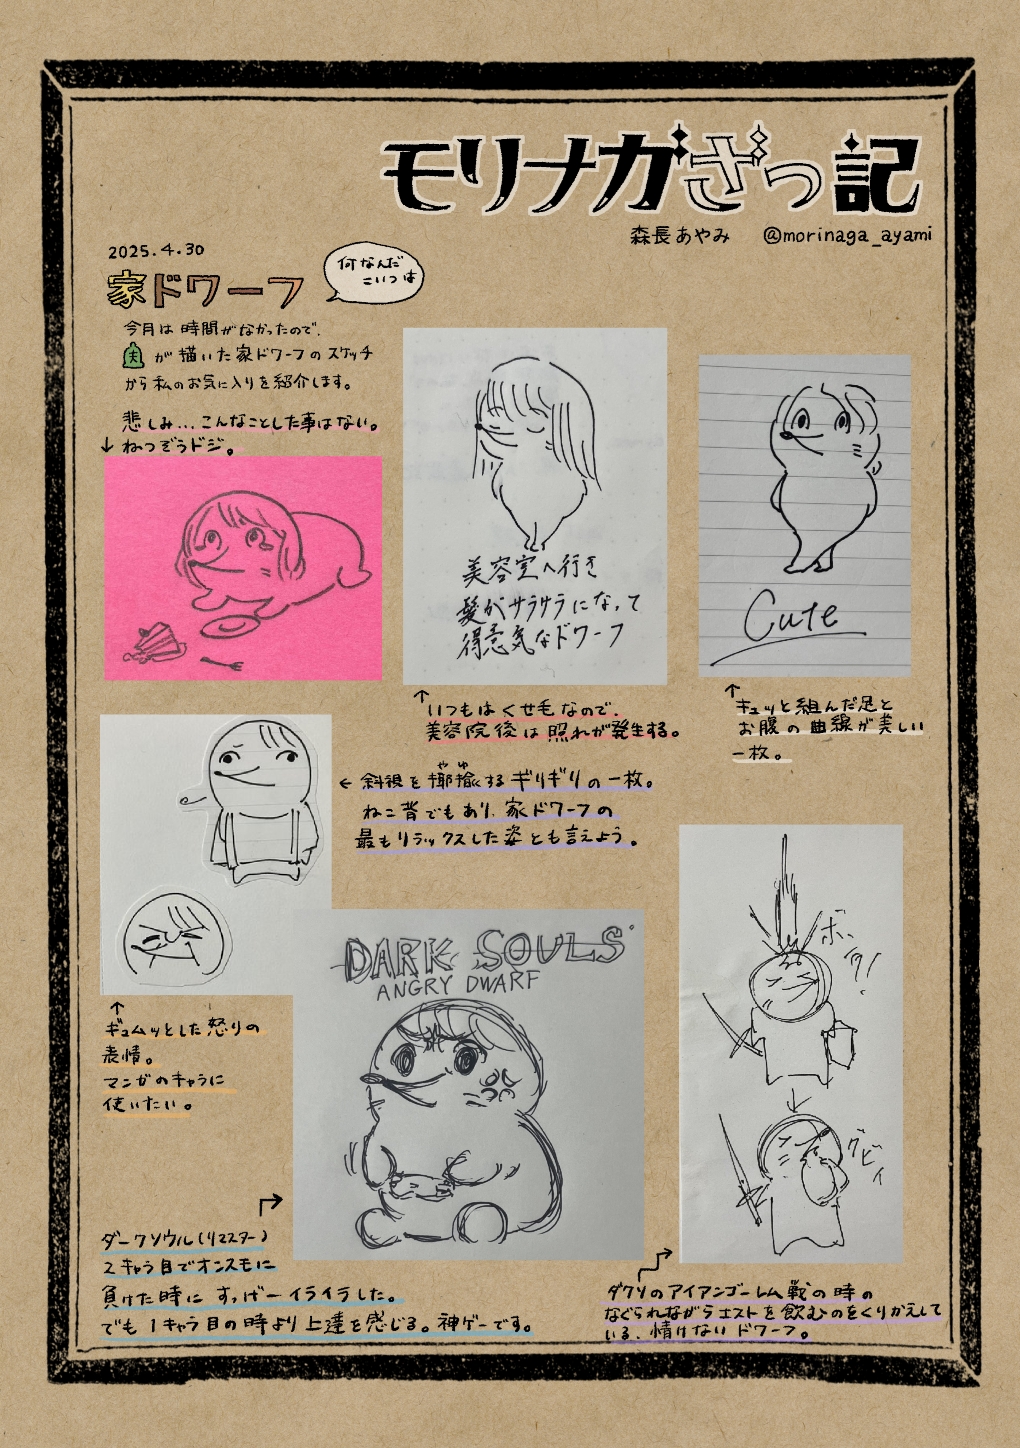 モリナガざっ記
森長あやみ @morinaga_ayami
2025.4.30
家ドワーフ
何なんだ
こいつは
今月は時間がなかったので、
夫が描いた家ドワーフのスケッチ
から私のお気に入りを紹介します。
悲しみ...こんなことした事はない。
↓ねつぞうドジ。
美容室へ行き
髪がサラサラになって
得意気なドワーフ
Cute
↑いつもはくせ毛なので、
美容院後は照れが発生する。
↑キュッと組んだ足と
お腹の曲線が美しい
一枚。
←斜視を揶揄するギリギリの一枚。
やゆ
ねこ背でもあり、家ドワーフの
最もリラックスした姿とも言えよう。
↑
ギュムッとした怒りの
表情。
マンガのキャラに
使いたい。
DARK SOULS
ANGRY DWARF
ボッ
グビィ
ダークソウル(リマスター)
2キャラ目でオンスモに
負けた時にすっげーイライラした。
でも1キャラ目の時より上達を感じる。神ゲーです。
ダクソのアイアンゴーレム戦の時の
なぐられながらエストを飲むのをくりかえして
いる、情けないドワーフ。